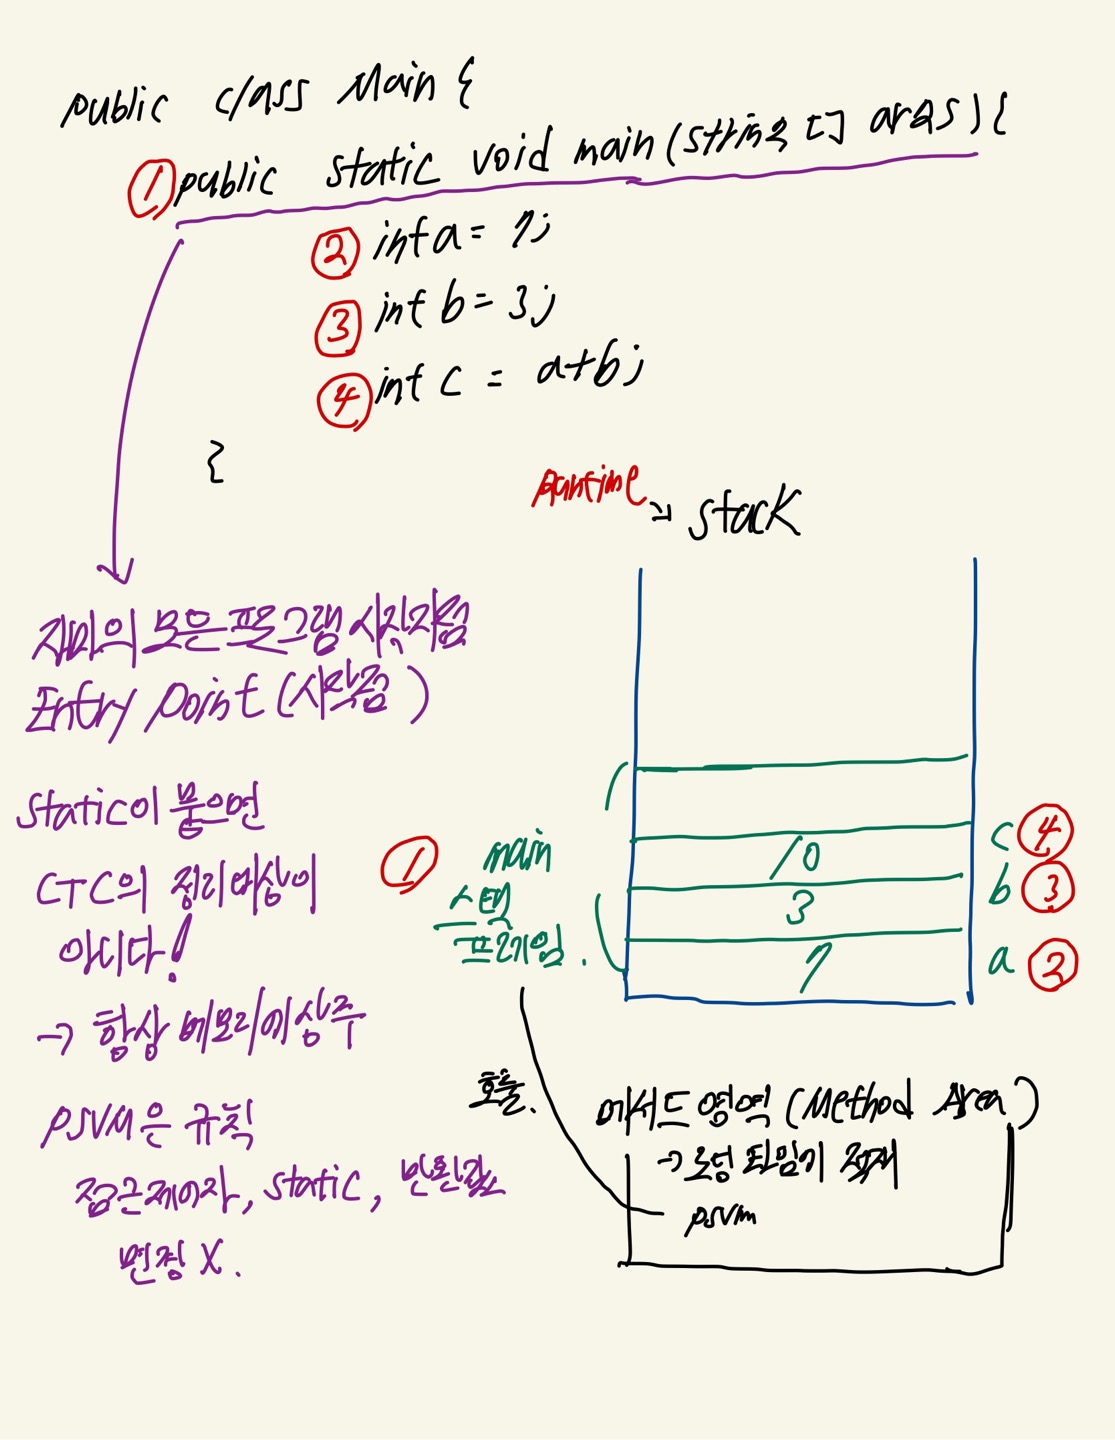 public class Main {
① public static void main (String [] args) {
② int a = 7;
③ int b = 3;
④ int c = a+b;
{
Runtime → stack
자바의 모든 프로그램 시작지점
Entry Point (시작점)
static이 붙으면
GTC의 정리대상이
아니다!
→ 항상 메모리에 상주
PSVM은 규칙
접근제어자, static, 반환값
변경 X.
① main
스택
프레임.
10 c ④
3 b ③
7 a ②
호출.
메서드 영역 (Method Area)
→ 로딩 타임기 적재
psvm